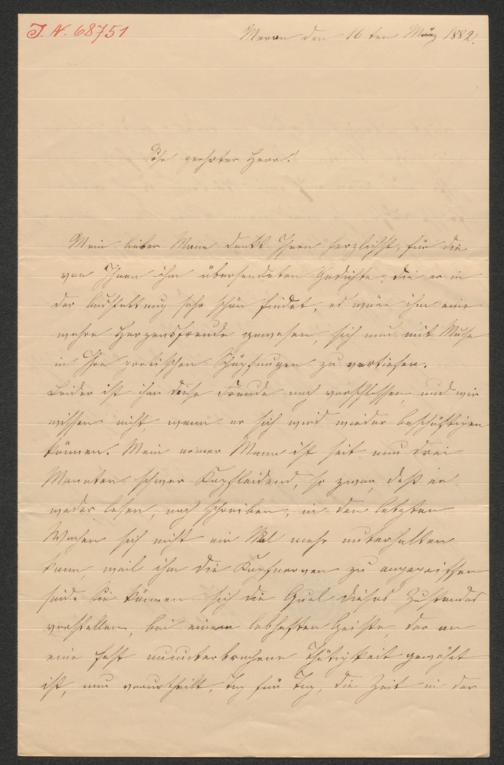 J. N. 68751
Meran den 16ten März 1882.
Sehr geehrter Herr!
Mein lieber Mann dankt Ihnen herzlichst, für die
von Ihnen ihm übersendeten Gedichte, die er in
der Ausstattung sehr schön findet, es wäre ihm eine
wahre Herzensfreude gewesen, sich nun mit Muße
in Ihre poetischen Schöpfungen zu vertiefen.
Leider ist ihm diese Freude noch verschlossen, und wir
wissen nicht wann er sich wird wieder beschäftigen
können. Mein armer Mann ist seit nun drei
Monaten schwer Kopfleidend, so zwar, daß er
weder lesen, noch schreiben, in den letzten
Wochen sich nicht ein Mal mehr unterhalten
kann, weil ihm die Kopfnerven zu angegriffen
sind. Sie können sich die Qual dieses Zustandes
vorstellen, bei einem lebhaften Geiste, der an
eine fast ununterbrochene Thätigkeit gewöhnt
ist, nun verurtheilt, Tag für Tag, die Zeit in der